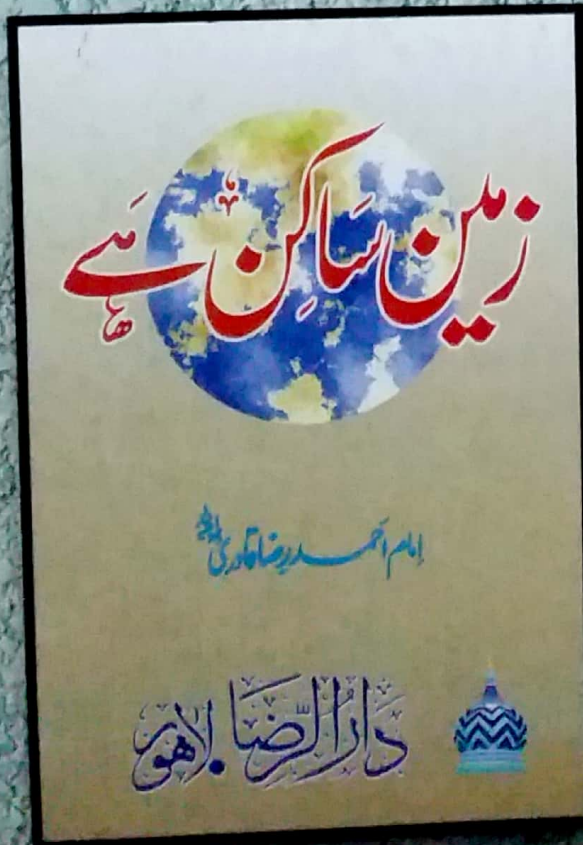 زمین ساکن ہے
امام احمد رضا قادری
دارالرضا لاہور